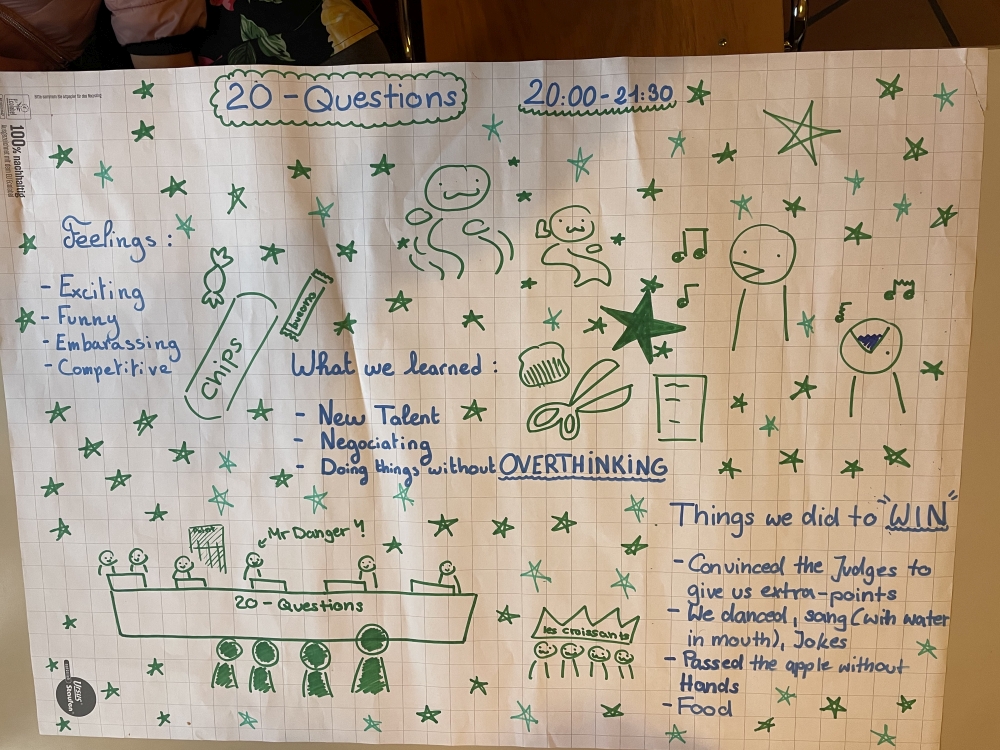 20 - Questions
20:00 - 21:30
100% nachhaltig
Feelings :
- Exciting
- Funny
- Embarassing
- Competitive
Chips
bueono
What we learned :
- New Talent
- Negociating
- Doing things without OVERTHINKING
Mr Danger !
20 - Questions
les croissants
Things we did to "WIN"
- Convinced the Judges to
give us extra-points
- We danced, sang (with water
in mouth), Jokes
- Passed the apple without
Hands
- Food